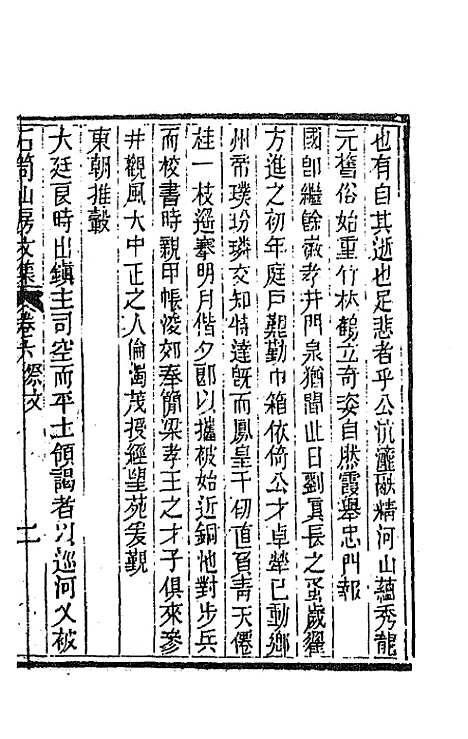 也有自其逝也足悲者乎公沆瀣融精河山蘊秀龍
元舊俗始重竹林鶴立奇姿自然霞舉忠門報
國卽繼餘徽孝井門泉猶聞止日劉真長之蚤歲翟
方進之初年庭戶艱勤巾箱依倚公才卓犖已動鄉
州帝璞玢璘交知特達旣而鳳皇千仞直負靑天僊
桂一枝遥搴明月偕夕郎以攜被始近銅池對步兵
而校書時親甲帳淩郊奉簡梁孝王之才子俱來參
井觀風大中正之人倫濁茂授經望苑爰覲
東朝推轂
大廷良時出鎭主司空而平土領謁者以巡河乂被
石笥山房文集 卷六 祭文 二